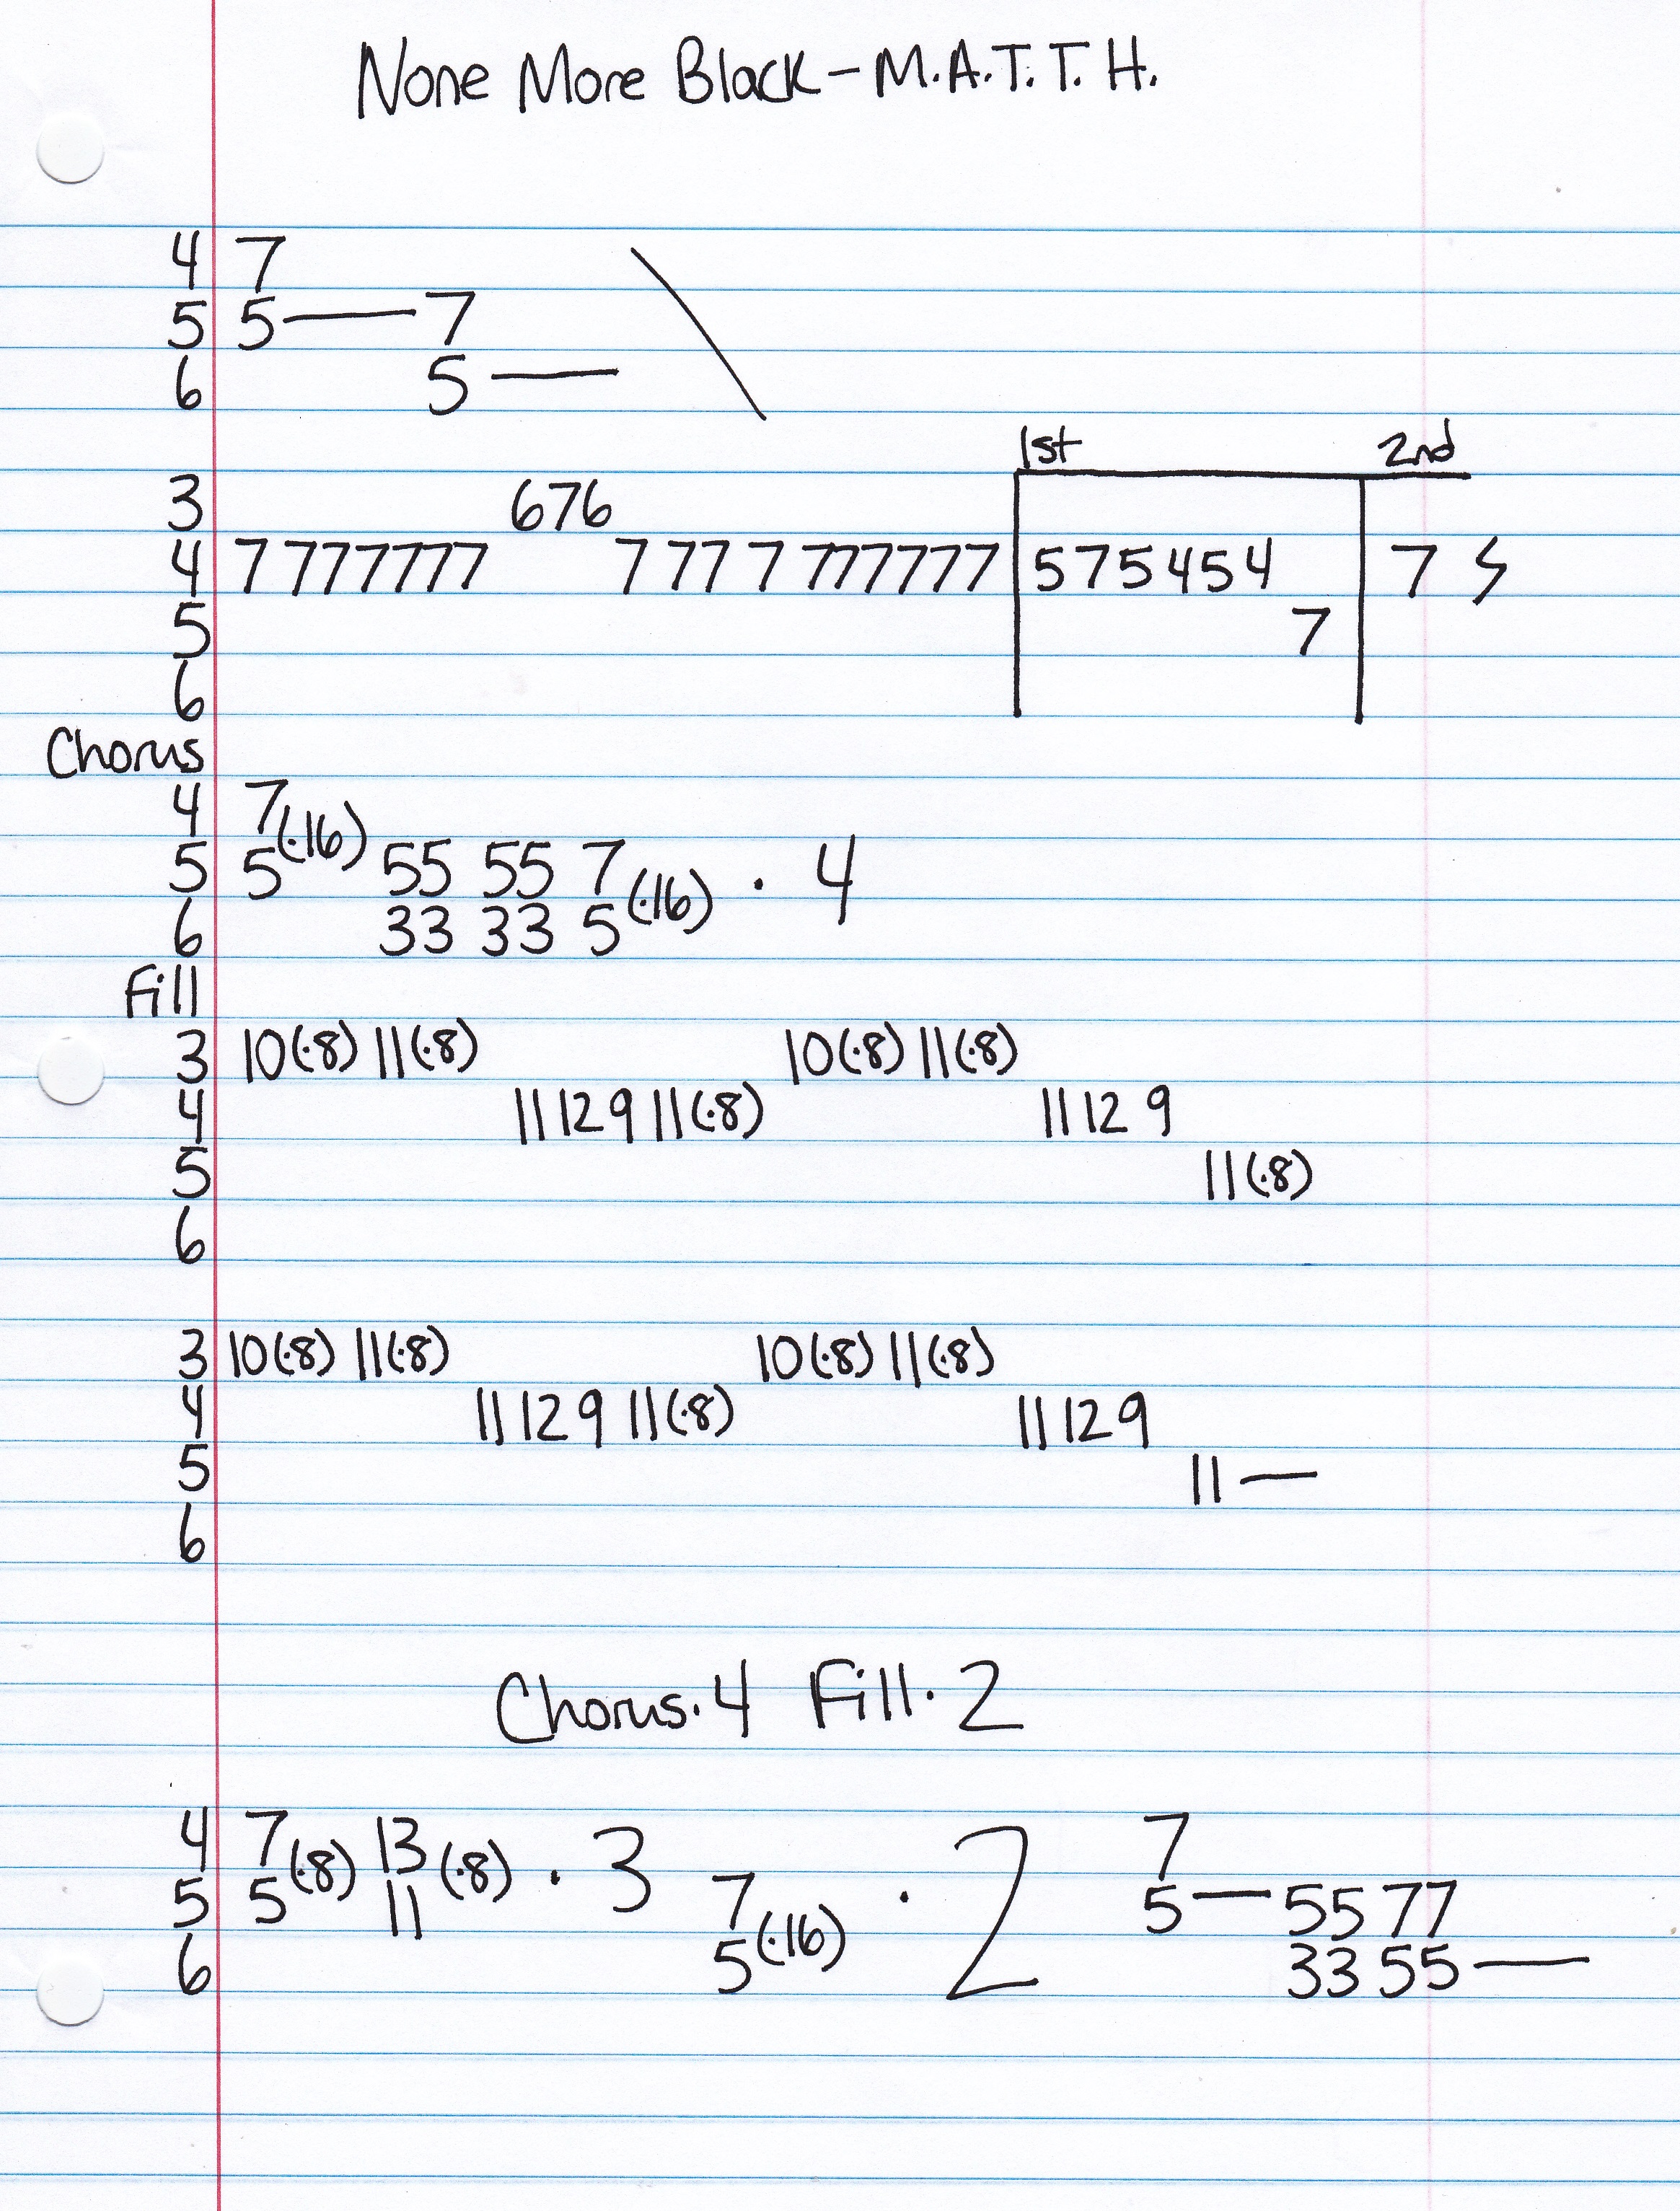 None More Black – M.A.T.T.H.
4 7
5 5 — 7
6 5 — \
1st 2nd
3 676
4 7 777777 7 777 7 777777 575454 7 𝄽
5 7
6
Chorus
4 7
5 5(·16) 55 55 7 · 4
6 33 33 5(·16)
Fill
3 10(·8) 11(·8) 10(·8) 11(·8)
4 11 12 9 11(·8) 11 12 9
5 11(·8)
6
3 10(·8) 11(·8) 10(·8) 11(·8)
4 11 12 9 11(·8) 11 12 9
5 11 —
6
Chorus·4 Fill·2
4 7 13 7
5 5(·8) 11(·8) · 3 7 · 2 5 — 55 77
6 5(·16) 33 55 —